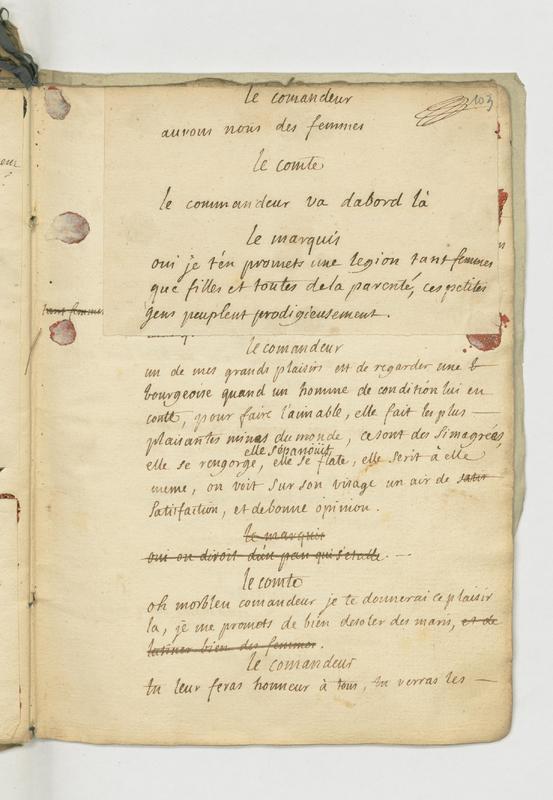 103
le comandeur
aurons nous des femmes
le comte
le commandeur va dabord là
le marquis
oui je t'en promets une legion tant femmes
que filles et toutes dela parenté, ces petites
gens peuplent prodigieusement.
tant femmes
le comandeur
un de mes grands plaisirs est de regarder une b
bourgeoise quand un homme de condition lui en
conte, pour faire l'aimable, elle fait les plus —
plaisantes mines du monde, ce sont des simagrées,
elle s'epanouit
elle se rengorge, elle se flate, elle serit à elle
meme, on voit sur son visage un air de satis
satisfaction, et debonne opinion.
le marquis
oui on diroit d'un pan qui s'etalle. —
le comte
oh morbleu comandeur je te donnerai ce plaisir
la, je me promets de bien desoler des maris, et de
lutiner bien des femmes.
le comandeur
tu leur feras honneur à tous, tu verras les —